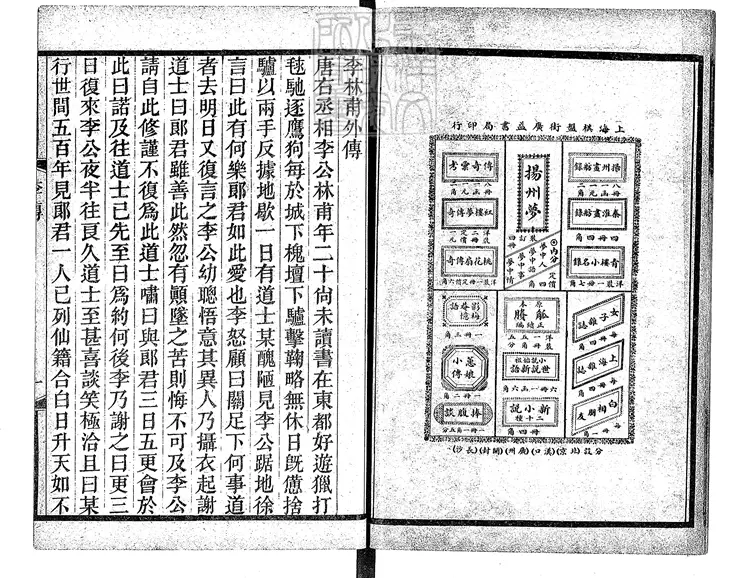 上海棋盤街廣益書局印行
揚州畫舫錄
秦淮畫舫錄
四冊四角
青樓小名錄
揚州夢
傳奇彙考
紅樓夢傳奇
桃花扇傳奇
女子雜誌
上海雜誌
白相朋友
原本
觚賸
正續編
小說始祖
世說新語
六冊一元六角
新小說
二十種
影梅菴憶語
一冊三角
蕙娘小傳
一冊二角
捧腹談
一冊一角五分
分設(北京)(漢口)(廣州)(開封)(長沙)
李林甫外傳
唐右丞相李公林甫年二十尙未讀書在東都好遊獵打
毬馳逐鷹狗每於城下槐壇下驢擊鞠略無休日旣憊捨
驢以兩手反據地歇一日有道士某醜陋見李公踞地徐
言曰此有何樂郞君如此愛也李怒顧曰關足下何事道
者去明日又復言之李公幼聰悟意其異人乃攝衣起謝
道士曰郞君雖善此然忽有顚墜之苦則悔不可及李公
請自此修謹不復爲此道士嘯曰與郞君三日五更會於
此曰諾及往道士已先至曰爲約何後李乃謝之曰更三
日復來李公夜半往亙久道士至甚喜談笑極洽且曰某
行世間五百年見郞君一人已列仙籍合白日升天如不